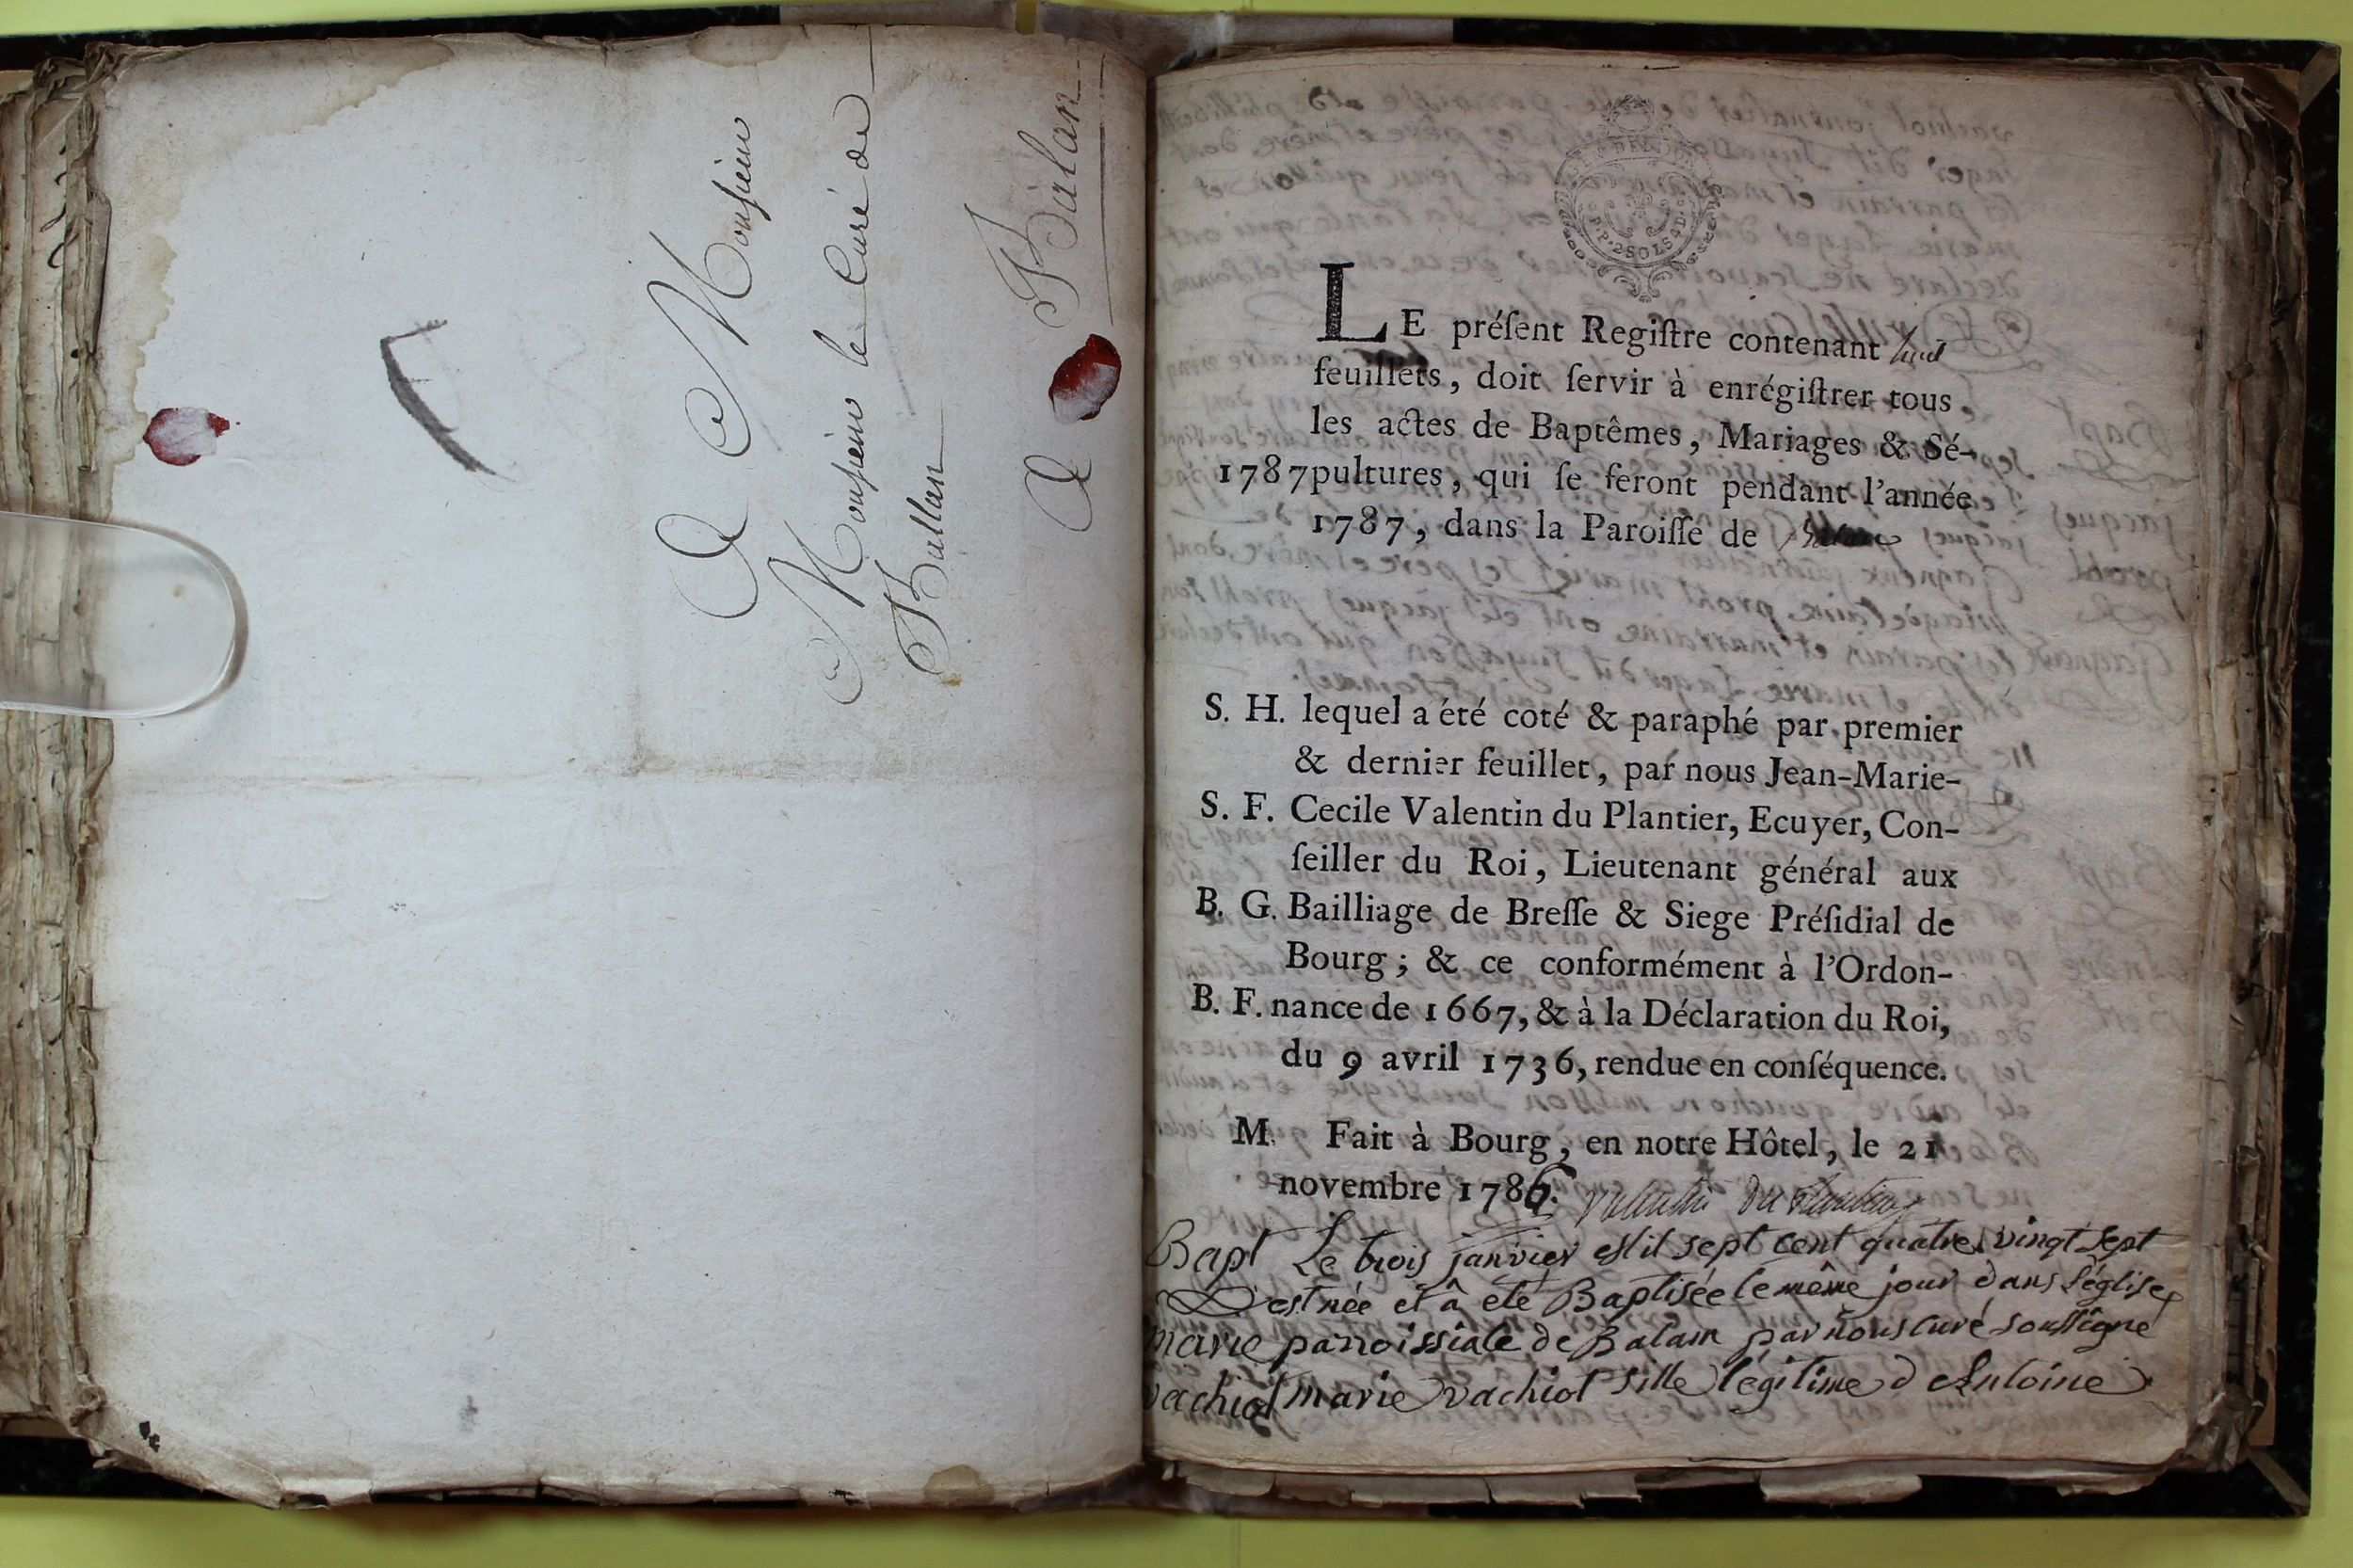 A Monsieur
Monsieur le Curé de
Ballan
A Balan
LE préſent Regiſtre contenant huit
feuillets, doit ſervir à enrégiſtrer tous
les actes de Baptêmes, Mariages & Sé-
1787 pultures, qui ſe feront pendant l'année
1787, dans la Paroiſſe de
S. H. lequel a été coté & paraphé par premier
& dernier feuillet, par nous Jean-Marie-
S. F. Cecile Valentin du Plantier, Ecuyer, Con-
ſeiller du Roi, Lieutenant général aux
B. G. Bailliage de Breſſe & Siege Préſidial de
Bourg ; & ce conformément à l'Ordon-
B. F. nance de 1667, & à la Déclaration du Roi,
du 9 avril 1736, rendue en conſéquence.
M. Fait à Bourg, en notre Hôtel, le 21
novembre 1786. Valentin du Plantier
Bapt Le trois janvier mil sept cent quatre vingt sept
est née et à eté Baptisée le même jour dans l'église
marie parroissiale de Balam par nous curé soussigné
vachiot marie vachiot fille légitime d Antoine